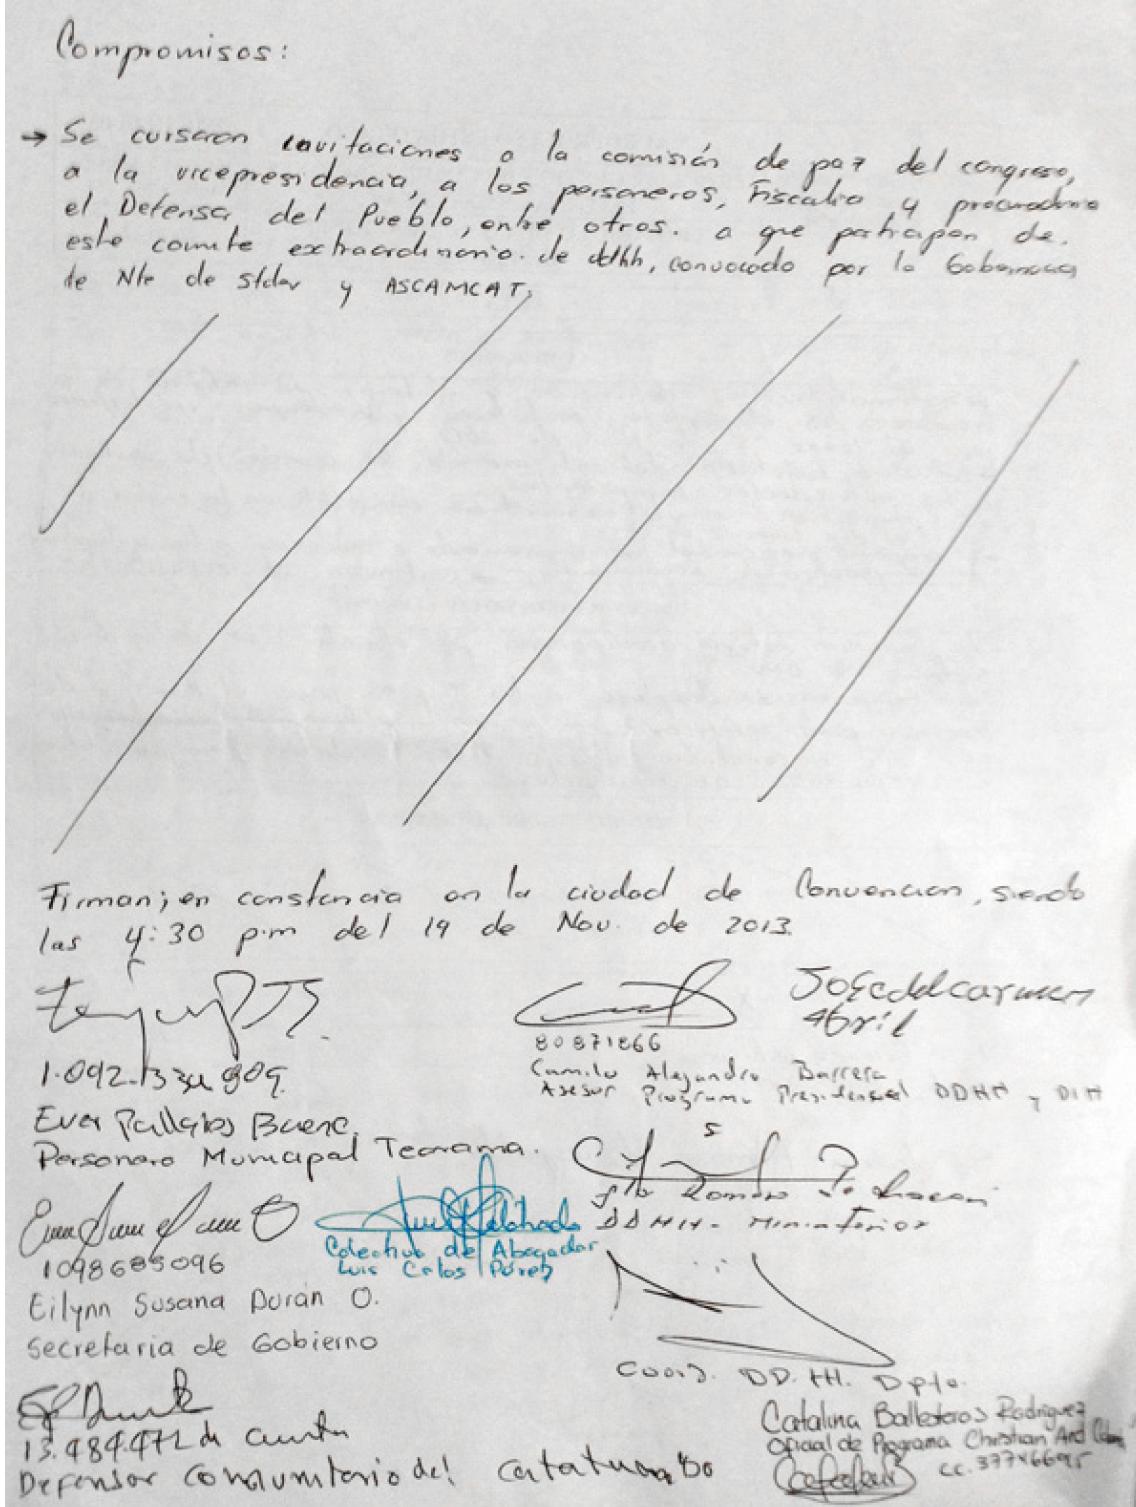 Compromisos:
→ Se cursaron invitaciones a la comisión de paz del congreso,
a la vicepresidencia, a los personeros, Fiscalia y procuradoria
el Defensor del Pueblo, entre otros. a que participen de.
este comite extraordinario. de ddhh, convocado por la Gobernacion
de Nte de Stder y ASCAMCAT,
Firman; en constancia en la ciudad de Convencion, siendo
las 4:30 p.m del 19 de Nov. de 2013.
Jose del carmen
Abril
80871866
Camilo Alejandro Barrera
Asesor Programa Presidencial DDHH y DIH
1.092.
Personero Municipal Teorama.
DDHH - Mininterior
Colectivo de Abogados
Luis Carlos Pérez
1098685096
Eilynn Susana Durán O.
Secretaria de Gobierno
Coord. DD.HH. Dpto.
13.484.472 de Cucuta
Defensor Comunitario del Catatumbo
Catalina Ballesteros Rodriguez
Oficial de Programa Christian Aid
cc.